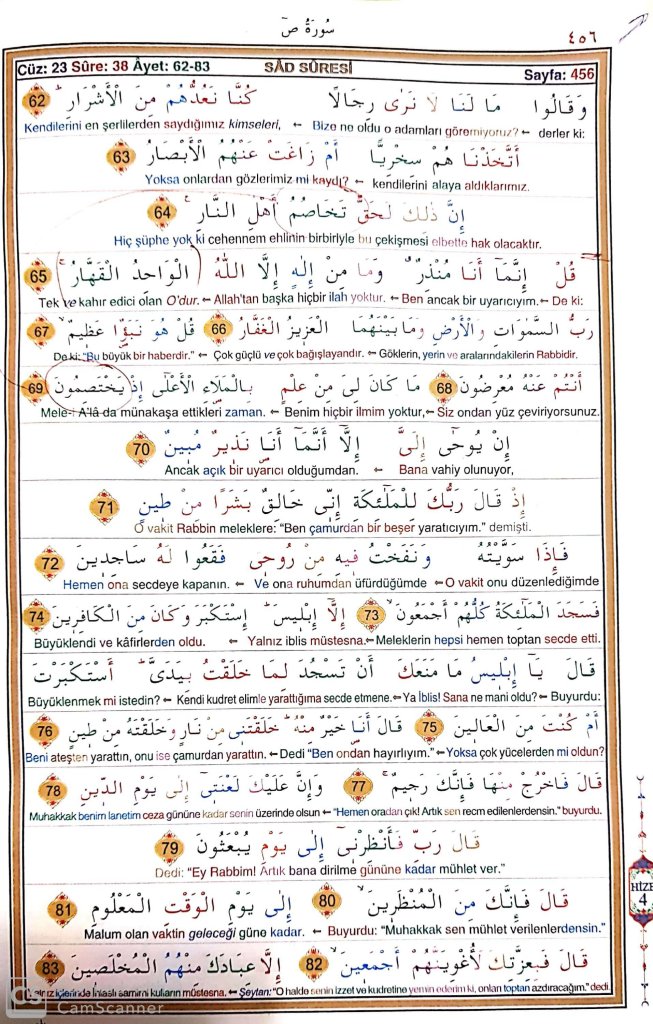 سُورَةُ صٓ
٤٥٦
Cüz: 23 Sûre: 38 Âyet: 62-83
SÂD SÛRESİ
Sayfa: 456
وَقَالُوا مَا لَنَا لَا نَرٰى رِجَالًا كُنَّا نَعُدُّهُمْ مِنَ الْاَشْرَارِۜ 62
Kendilerini en şerlilerden saydığımız kimseleri, ← Bize ne oldu o adamları göremiyoruz? ← derler ki:
اَتَّخَذْنَا هُمْ سِخْرِيًّا اَمْ زَاغَتْ عَنْهُمُ الْاَبْصَارُ 63
Yoksa onlardan gözlerimiz mi kaydı? ← kendilerini alaya aldıklarımız.
اِنَّ ذٰلِكَ لَحَقٌّ تَخَاصُمُ اَهْلِ النَّارِ۟ 64
Hiç şüphe yok ki cehennem ehlinin birbiriyle bu çekişmesi elbette hak olacaktır.
قُلْ اِنَّمَٓا اَنَا مُنْذِرٌۗ وَمَا مِنْ اِلٰهٍ اِلَّا اللّٰهُ الْوَاحِدُ الْقَهَّارُۚ 65
Tek ve kahır edici olan O'dur. ← Allah'tan başka hiçbir ilah yoktur. ← Ben ancak bir uyarıcıyım. ← De ki:
رَبُّ السَّمٰوَاتِ وَالْاَرْضِ وَمَا بَيْنَهُمَا الْعَز۪يزُ الْغَفَّارُ 66 قُلْ هُوَ نَبَؤٌا عَظ۪يمٌۙ 67
De ki: "Bu büyük bir haberdir." ← Çok güçlü ve çok bağışlayandır. ← Göklerin, yerin ve aralarındakilerin Rabbidir.
اَنْتُمْ عَنْهُ مُعْرِضُونَ 68 مَا كَانَ لِيَ مِنْ عِلْمٍ بِالْمَلَأِ الْاَعْلٰٓى اِذْ يَخْتَصِمُونَ 69
Mele-i A'lâ da münakaşa ettikleri zaman. ← Benim hiçbir ilmim yoktur, ← Siz ondan yüz çeviriyorsunuz.
اِنْ يُوحٰٓى اِلَيَّ اِلَّٓا اَنَّمَٓا اَنَا۬ نَذ۪يرٌ مُب۪ينٌ 70
Ancak açık bir uyarıcı olduğumdan. ← Bana vahiy olunuyor,
اِذْ قَالَ رَبُّكَ لِلْمَلٰٓئِكَةِ اِنّ۪ي خَالِقٌ بَشَرًا مِنْ ط۪ينٍ 71
O vakit Rabbin meleklere: "Ben çamurdan bir beşer yaratıcıyım." demişti.
فَاِذَا سَوَّيْتُهُ وَنَفَخْتُ ف۪يهِ مِنْ رُوح۪ي فَقَعُوا لَهُ سَاجِد۪ينَ 72
Hemen ona secdeye kapanın. ← Ve ona ruhumdan üfürdüğümde ← O vakit onu düzenlediğimde
فَسَجَدَ الْمَلٰٓئِكَةُ كُلُّهُمْ اَجْمَعُونَۙ 73 اِلَّٓا اِبْل۪يسَۜ اِسْتَكْبَرَ وَكَانَ مِنَ الْكَافِر۪ينَ 74
Büyüklendi ve kâfirlerden oldu. ← Yalnız iblis müstesna. ← Meleklerin hepsi hemen toptan secde etti.
قَالَ يَٓا اِبْل۪يسُ مَا مَنَعَكَ اَنْ تَسْجُدَ لِمَا خَلَقْتُ بِيَدَيَّۜ اَسْتَكْبَرْتَ
Büyüklenmek mi istedin? ← Kendi kudret elimle yarattığıma secde etmene. ← Ya İblis! Sana ne mani oldu? ← Buyurdu:
اَمْ كُنْتَ مِنَ الْعَال۪ينَ 75 قَالَ اَنَا۬ خَيْرٌ مِنْهُۜ خَلَقْتَن۪ي مِنْ نَارٍ وَخَلَقْتَهُ مِنْ ط۪ينٍ 76
Beni ateşten yarattın, onu ise çamurdan yarattın. ← Dedi "Ben ondan hayırlıyım." ← Yoksa çok yücelerden mi oldun?
قَالَ فَاخْرُجْ مِنْهَا فَاِنَّكَ رَج۪يمٌۚ 77 وَاِنَّ عَلَيْكَ لَعْنَت۪ٓي اِلٰى يَوْمِ الدّ۪ينِ 78
Muhakkak benim lanetim ceza gününe kadar senin üzerinde olsun ← "Hemen oradan çık! Artık sen recm edilenlerdensin." buyurdu.
قَالَ رَبِّ فَاَنْظِرْن۪ٓي اِلٰى يَوْمِ يُبْعَثُونَ 79
Dedi: "Ey Rabbim! Artık bana dirilme gününe kadar mühlet ver."
قَالَ فَاِنَّكَ مِنَ الْمُنْظَر۪ينَۙ 80 اِلٰى يَوْمِ الْوَقْتِ الْمَعْلُومِ 81
Malum olan vaktin geleceği güne kadar. ← Buyurdu: "Muhakkak sen mühlet verilenlerdensin."
قَالَ فَبِعِزَّتِكَ لَاُغْوِيَنَّهُمْ اَجْمَع۪ينَۙ 82 اِلَّا عِبَادَكَ مِنْهُمُ الْمُخْلَص۪ينَ 83
içlerinde ihlaslı samimi kulların müstesna. ← Şeytan: "O halde senin izzet ve kudretine yemin ederim ki, onları toptan azdıracağım." dedi.
HİZB
4
CS CamScanner